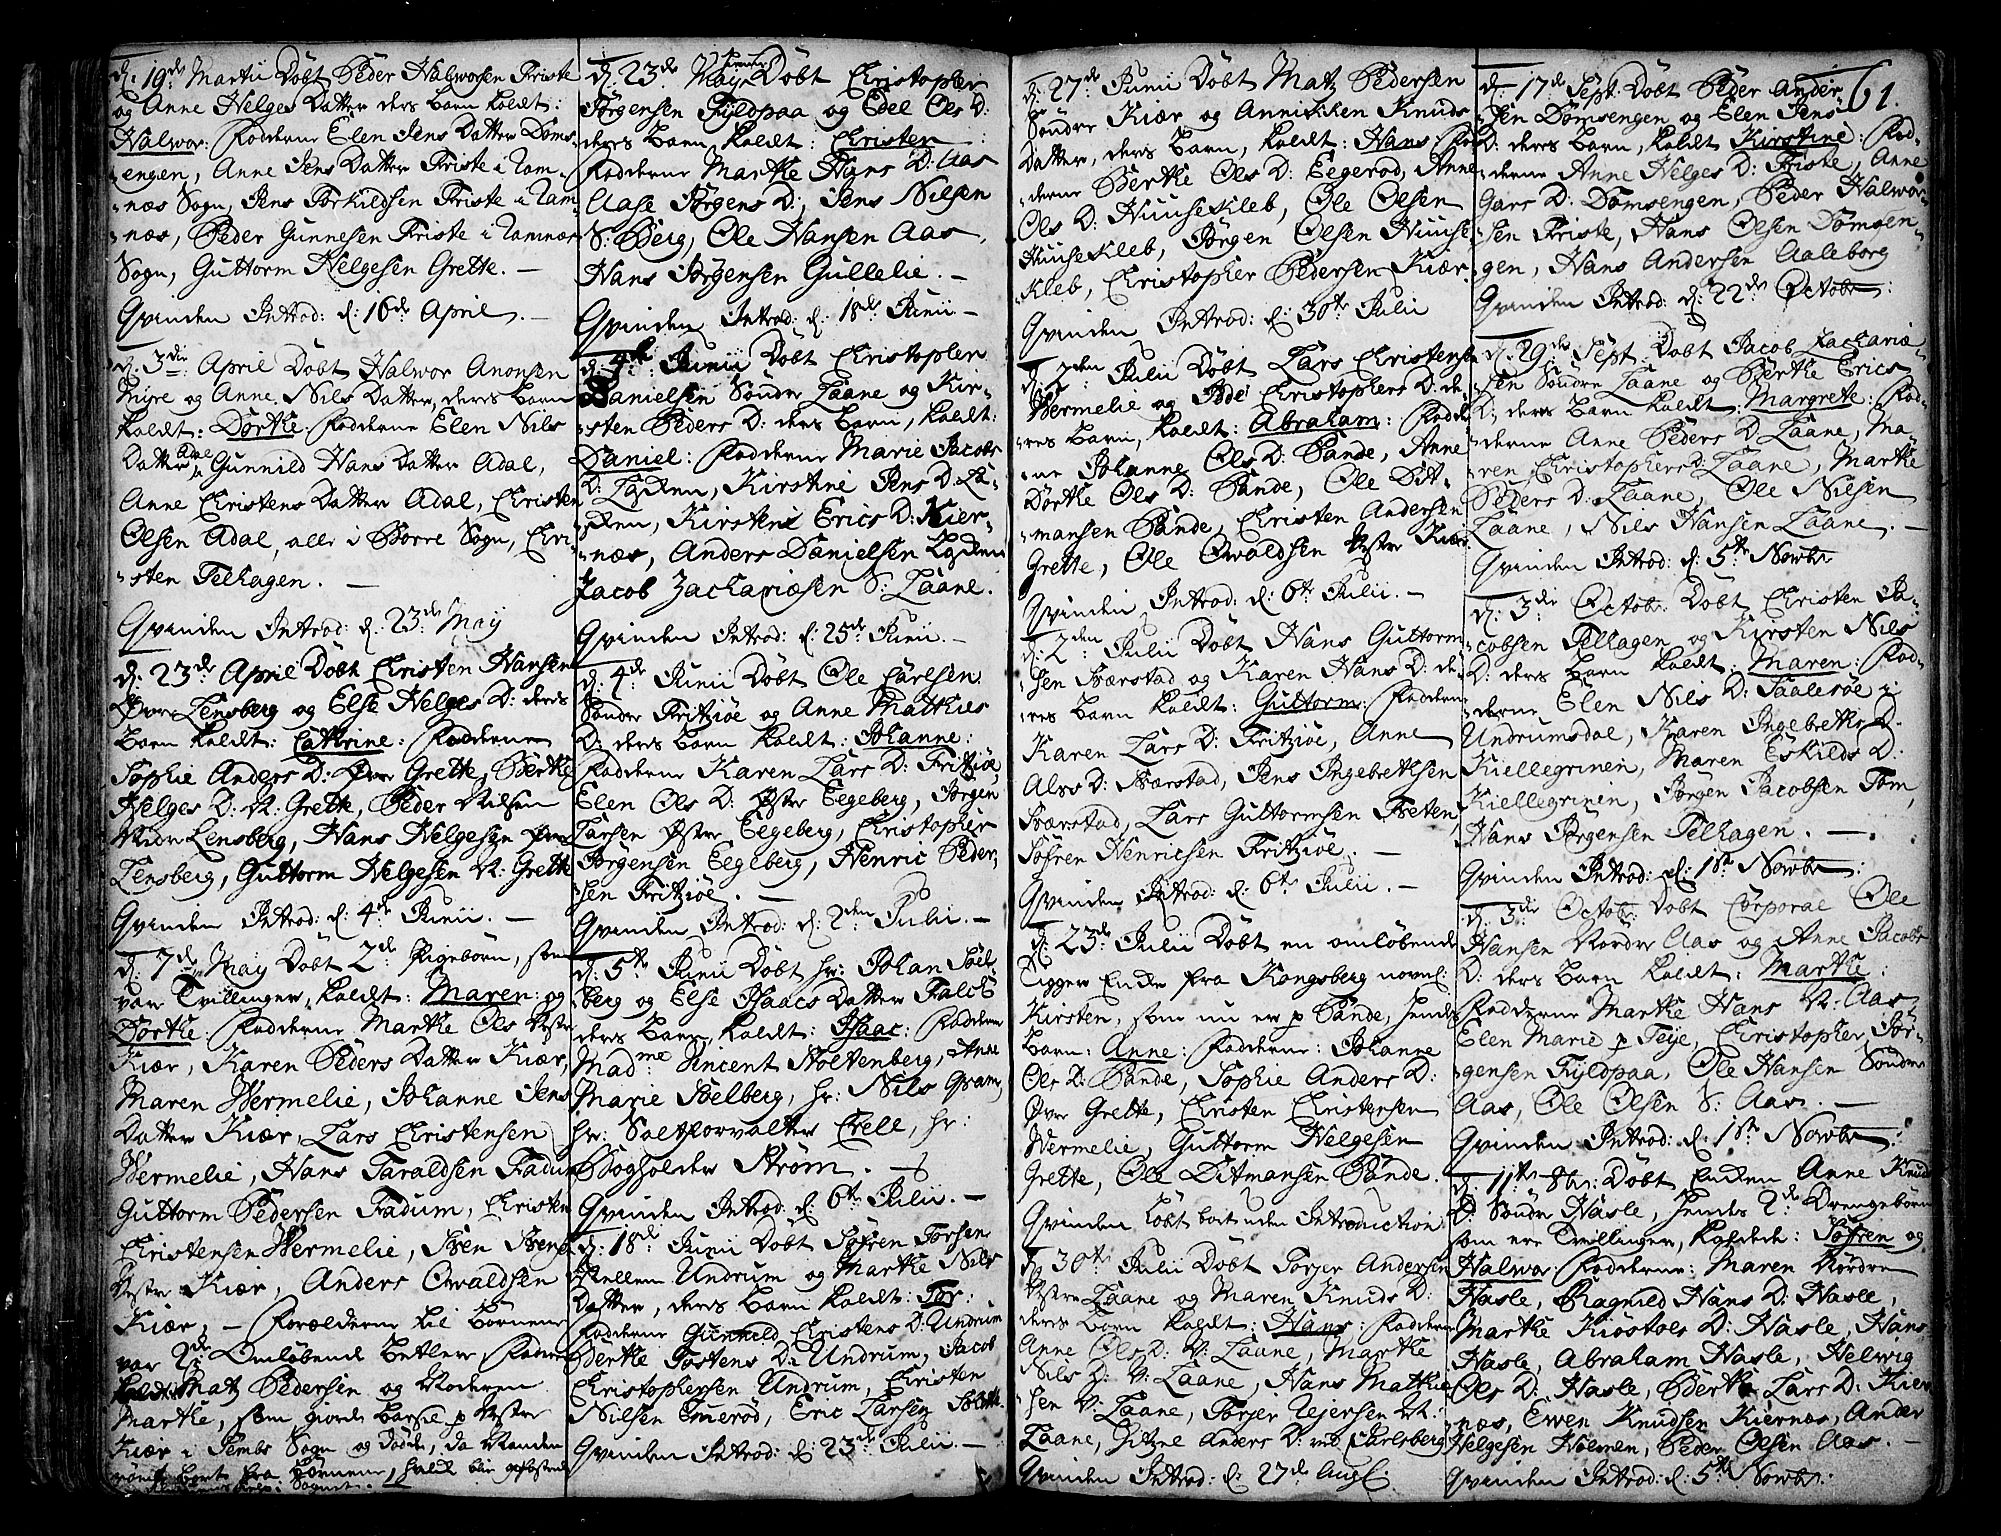 d: 19de Martii Döbt Peder Halworsen Friste
og Anne Helges Datter ders barn kaldt:
Halwor: Fadderne Elen Jens Datter Doms-
-engen, Anne Jens Datter Friste i Ram-
-næs Sogn, Jens Torkildsen Friste i Ram-
-næs, Peder Gunnesen Friste i Ramnæs
Sogn, Guttorm Helgesen Grette. —
Qvinden Introd: d: 16de April. —
d: 3die April Döbt Halwor Anonsen
Myre og Anne Nils Datter, deres barn
kaldt: Dorthe: Fadderne Elen Nils
Datter Adal, Gunnild Hans Datter Adal,
Anne Christens Datter Adal, Christen
Olsen Adal, alle i Borre Sogn, Chri-
-sten Felhagen. —
Qvinden Introd: d: 23de May
d: 23de April Döbt Christen Hansen
Øvre Lensberg og Else Helges D: deres
barn kaldt: Cathrine: Fadderne
Sophie Anders D: Øvre Grette, Berthe
Helges D: N: Grette, Peder Nilsen
Nidre Lensberg, Hans Helgesen Øvre
Lensberg, Guttorm Helgesen N: Grette
Qvinden Introd: d: 4de Junii. —
d: 7de May Döbt 2de Pigebörn, som
var Tvillinger, kaldt: Maren og
Dorthe: Fadderne Marthe Ols Vestre
Kiær, Karen Peders Datter Kiær,
Maren Wermelie, Johanne Jens
Datter Kiær, Lars Christensen
Wermelie, Hans Taraldsen Fadum
Guttorm Pedersen Fadum, Christen
Christensen Wermelie, Iven Ivens
Vestre Kiær, Anders Owaldsen
Kiær, — Forælderne til börnene
var 2de Omlöbende betlere, Faderen
kaldt Matz Pedersen og Moderen
Marthe, som giorde barsel p Vestre
Kiær i Sembs Sogn og döde, da Manden
römte bort fra börnene, hvilke blev
Sognet. —
d: 23de May Döbt Christopher
Jörgensen Fyldpaa og Edel Ols D:
deres barn kaldt: Christen
Fadderne Marthe Hans D: Aas
Aase Jörgens D:, Jens Nilsen
S: Berg, Ole Hansen Aas,
Hans Jörgensen Gullelie. —
Qvinden Introd: d: 18de Junii —
d: 4de Junii Döbt Christopher
Danielsen Söndre Laane og Kir-
-sten Peders D: ders barn, kaldt:
Daniel: Fadderne Marie Jacobs
D: Løden, Kirstine Jens D: Lø-
-den, Kirsten Erics D: Kier-
-næs, Anders Danielsen Løden
Jacob Zachariæsen S: Laane.
Qvinden Introd: d: 25de Junii. —
d: 4de Junii Döbt Ole Carlsen
Söndre Fritziöe og Anne Mathies
D: ders barn kaldt: Johanne:
Fadderne Karen Lars D: Fritziöe
Elen Ols D: Østre Eegeberg, Jörgen
Larsen Østre Eegeberg, Christopher
Jörgensen Eegeberg, Henric Peder-
sen Fritziöe. —
Qvinden Introd: d: 2den Julii. —
d: 5te Junii Döbt hr: Johan Söel-
berg og Else Isaacs Datter Falck
deres barn, kaldt: Isaac: Fadderne
Madme Vincent Stoltenberg, Anne
Marie Söelberg, hr: Nils Gram,
hr: Saltforvalter Crell, hr:
Bogholder Ström. —
Qvinden Introd: d: 6te Julii. —
d: 18de Junii Döbt Söfren Torsen
Mellem Undrum og Marthe Nils
Datter, deres barn kaldt: Tor:
Fadderne Gunnild Christens D: Undrum
Berthe Tostens D: Undrum, Jacob
Christophersen Undrum, Christen
Nilsen Emeröd, Eric Larsen
Qvinden Introd: d: 23de Julii. —
61.
d: 27de Junii Döbt Matz Pedersen
Söndre Kiær og Anniken Knuds
Datter, deres barn, kaldt: Hans: Fad-
derne Berthe Ols D: Eegeröd, Anne
Ols D: Huusekleb, Ole Olsen
Huusekleb, Jörgen Olsen Huuse-
kleb, Christopher Pedersen Kiær
Qvinden Introd: d: 30te Julii
d: 2den Julii Döbt Lars Christensen
Wermelie og Ide Christophers D: de-
-res barn, kaldt: Abraham: Fadder-
ne Johanne Ols D: Sande, Anne
Dorthe Ols D: Sande, Ole Dit-
mansen Sande, Christen Andersen
Grette, Ole Owaldsen Vestre Kiær
Qvinden Introd: d: 6te Julii. —
d: 2den Julii Döbt Hans Guttorm-
sen Sværstad og Karen Hans D: de-
-res barn kaldt: Guttorm: Fadderne
Karen Lars D: Fritziöe, Anne
Als D: Sværstad, Jens Ingebretsen
Sværstad, Lars Guttormsen Freten,
Söfren Henricsen Fritziöe. —
Qvinden Introd: d: 6te Julii. —
d: 23de Julii Döbt en omlöbende
Tigger Encke fra Kongsberg navnl:
Kirsten, som nu er p Sande, hendes
barn: Anne: Fadderne: Johanne
Ols D: Sande, Sophie Anders D:
Øvre Grette, Christen Christensen
Wermelie, Guttorm Helgesen
Grette, Ole Ditmansen Sande.
Qvinden löbt bort uden Introduction
d: 30te Julii Döbt Torjer Andersen
Vestre Laane og Maren Knuds D:
ders barn kaldt: Hans: Fadderne
Anne Ols D: V: Laane, Marthe
Nils D: V: Laane, Hans Mathie-
sen V: Laane, Torjer Vejersen N:
Laane, Zitzne Anders D: ved Carlsberg
Qvinden Introd: d: 27de Aug:
d: 17de Sept: Döbt Peder Ander-
sen Domsengen og Elen Jens
D: deres barn, kaldt Kirstine: Fad-
derne Anne Helges D: Friste, Anne
Gars D: Domsengen, Peder Halwor-
sen Friste, Hans Olsen Domsen-
gen, Hans Andersen Aaleborg
Qvinden Introd: d: 22de Octobr:
d: 29de Sept: Döbt Jacob Zachariæ-
sen Söndre Laane og Berthe Erics
D: ders barn kaldt: Margrete: Fad-
derne Anne Peders D: Laane, Ma-
ren Christophers D: Laane, Marthe
Peders D: Laane, Ole Nilsen
Laane, Nils Hansen Laane. —
Qvinden Introd: d: 5te Novbr
d: 3die Octob: Döbt Christen Ja-
cobsen Felhagen og Kirsten Nils
D: ders barn kaldt: Maren: Fad-
derne Elen Nils D: Saaleröe i
Undrumsdal, Karen Ingebreths D:
Kiellegrinen, Maren Eskilds D:
Kiellegrinen, Jörgen Jacobsen Tom,
Hans Jörgensen Felhagen. —
Qvinden Introd: d: 18de Novbr:
d: 3die Octob: Döbt Corporal Ole
Hansen Nordre Aas og Anne Jacobs
D: ders barn kaldt: Marthe:
Fadderne Marthe Hans N: Aas
Elen Marie p Teye, Christopher Jör-
gensen Fyldpaa, Ole Hansen Söndre
Aas, Ole Olsen S: Aas. —
Qvinden Introd: d: 18de Novbr:
d: 11te 8br: Döbt Encken Anne Knuds
D: Söndre Hasle, hendes 2de Drengebörn
som ere Tvillinger, kaldede: Söfren og
Halwor: Fadderne: Maren Nordre
Hasle, Ragnild Hans D: Hasle,
Marthe Kiöstols D: Hasle, Hans
Hasle, Abraham Hasle, Helwig
Ols D: Hasle, Berthe Lars D: Kier-
næs, Ewen Knudsen Kiernæs, Anders
Helgesen Holmen, Peder Olsen Aas.
Qvinden Introd: d: 5te Novbr: